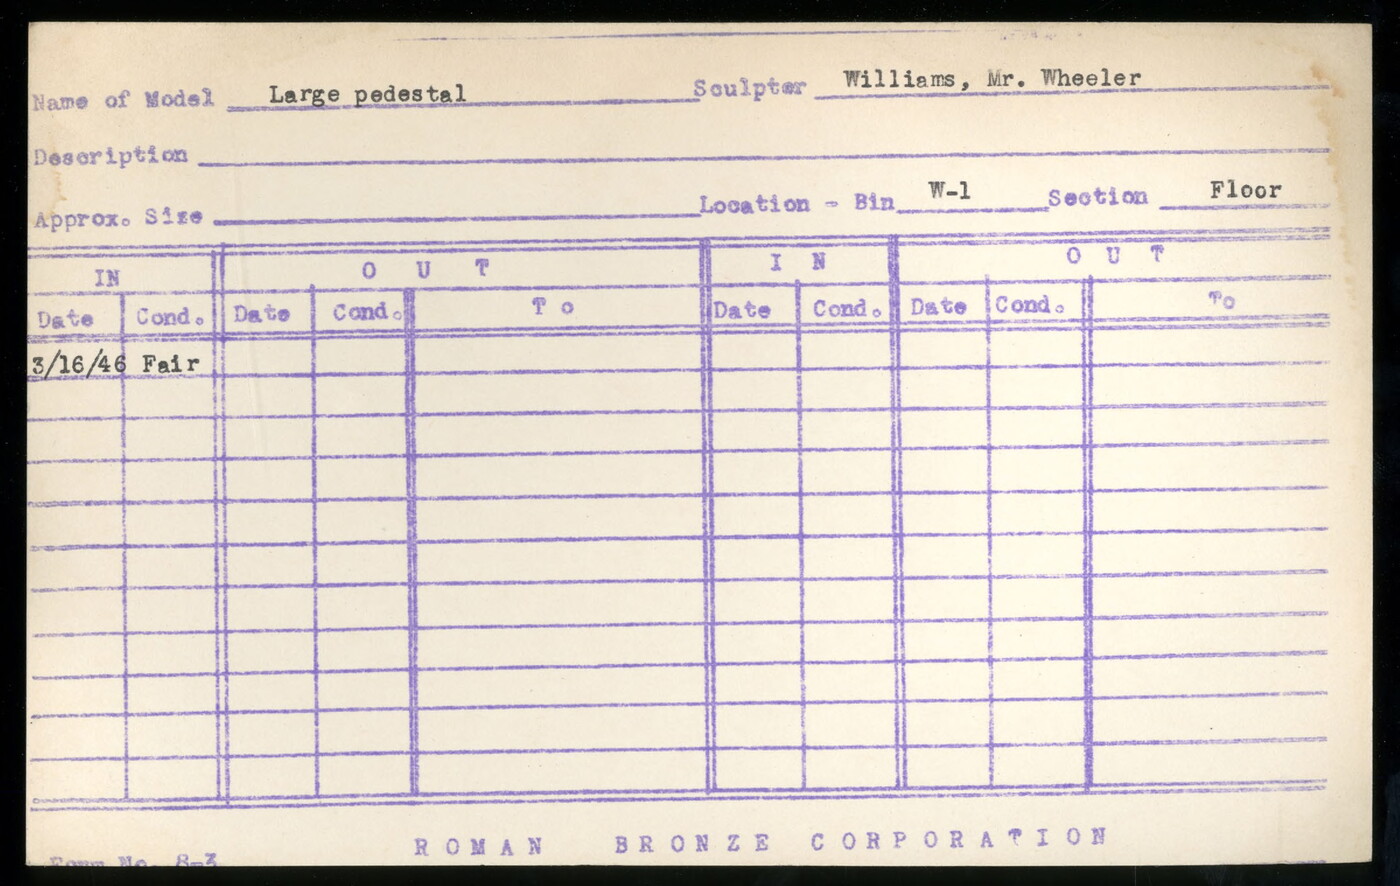 Name of Model Large pedestal Sculptor Williams, Mr. Wheeler
Description
Approx. Size Location - Bin W-1 Section Floor
IN O U T I N O U T
Date Cond. Date Cond. To Date Cond. Date Cond. To
3/16/46 Fair
ROMAN BRONZE CORPORATION
Form No. 8-3